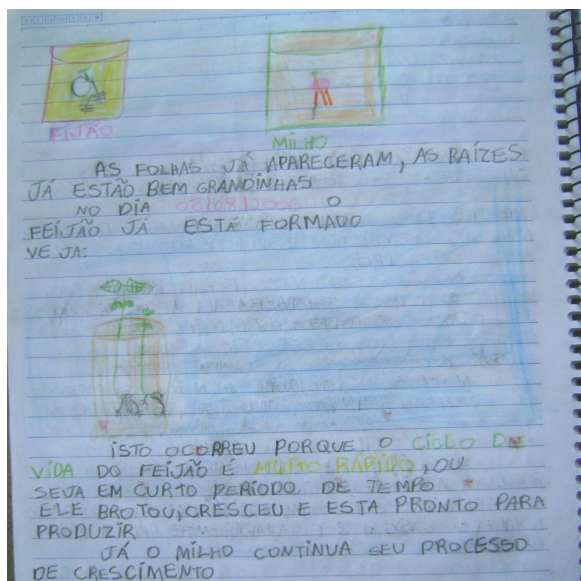 FIJÃO
MILHO
AS FOLHAS JÁ APARECERAM, AS RAÍZES
JÁ ESTÃO BEM GRANDINHAS
NO DIA 08/08/2006 O
FEIJÃO JÁ ESTÁ FORMADO
VEJA:
ISTO OCORREU PORQUE O CICLO DE
VIDA DO FEIJÃO É MUITO RÁPIDO, OU
SEJA EM CURTO PERÍODO DE TEMPO
ELE BROTOU, CRESCEU E ESTA PRONTO PARA
PRODUZIR
JÁ O MILHO CONTINUA SEU PROCESSO
DE CRESCIMENTO